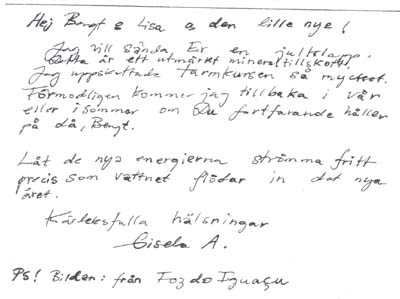 Hej Bengt & Lisa & den lille nye!
Jag vill sända Er en julklapp.
Detta är ett utmärket mineraltillskott.
Jag uppskattade Tarmkursen så mycket.
Förmodligen kommer jag tillbaka i vår
eller i sommar om Du fortfarande håller
på då, Bengt.
Låt de nya energierna strömma fritt
precis som vattnet flödar in det nya
året.
Kärleksfulla hälsningar
Gisela A.
PS! Bilden: från Foz do Iguaçu